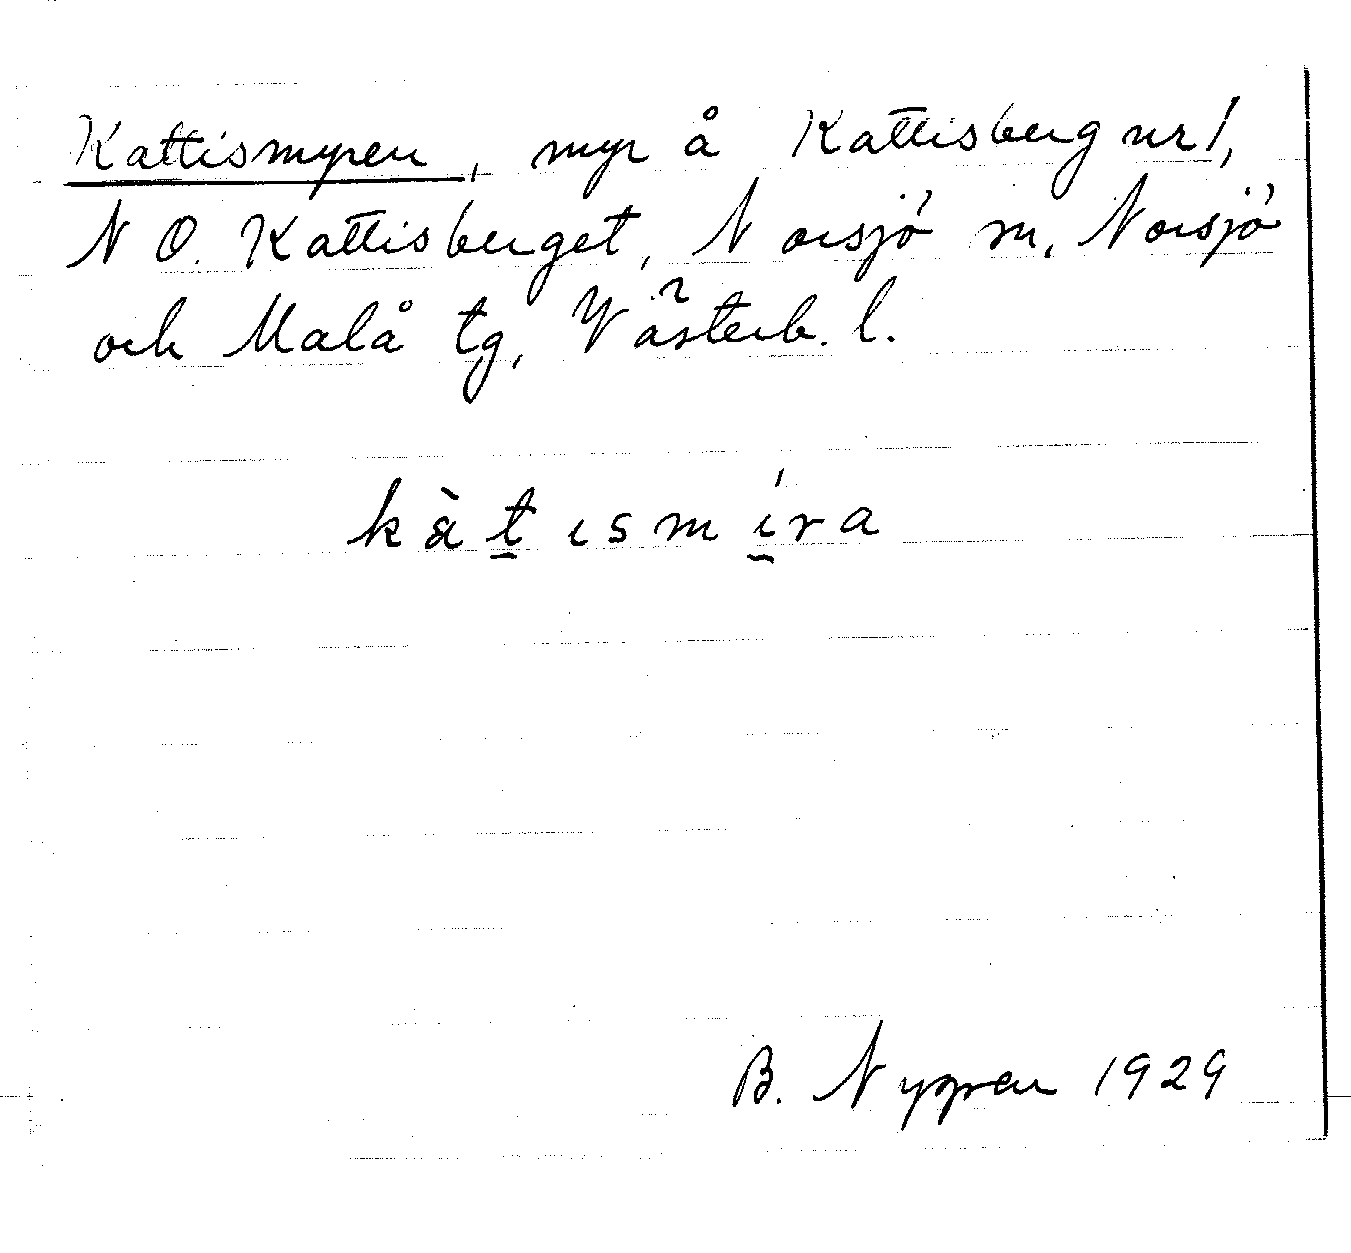 Kattismyren, myr å Kattisberg nr 1,
N O. Kattisberget, Norsjö sn, Norsjö
och Malå tg, Västerb. l.
kàt̠ısmí̠ra
B. Nygren 1929